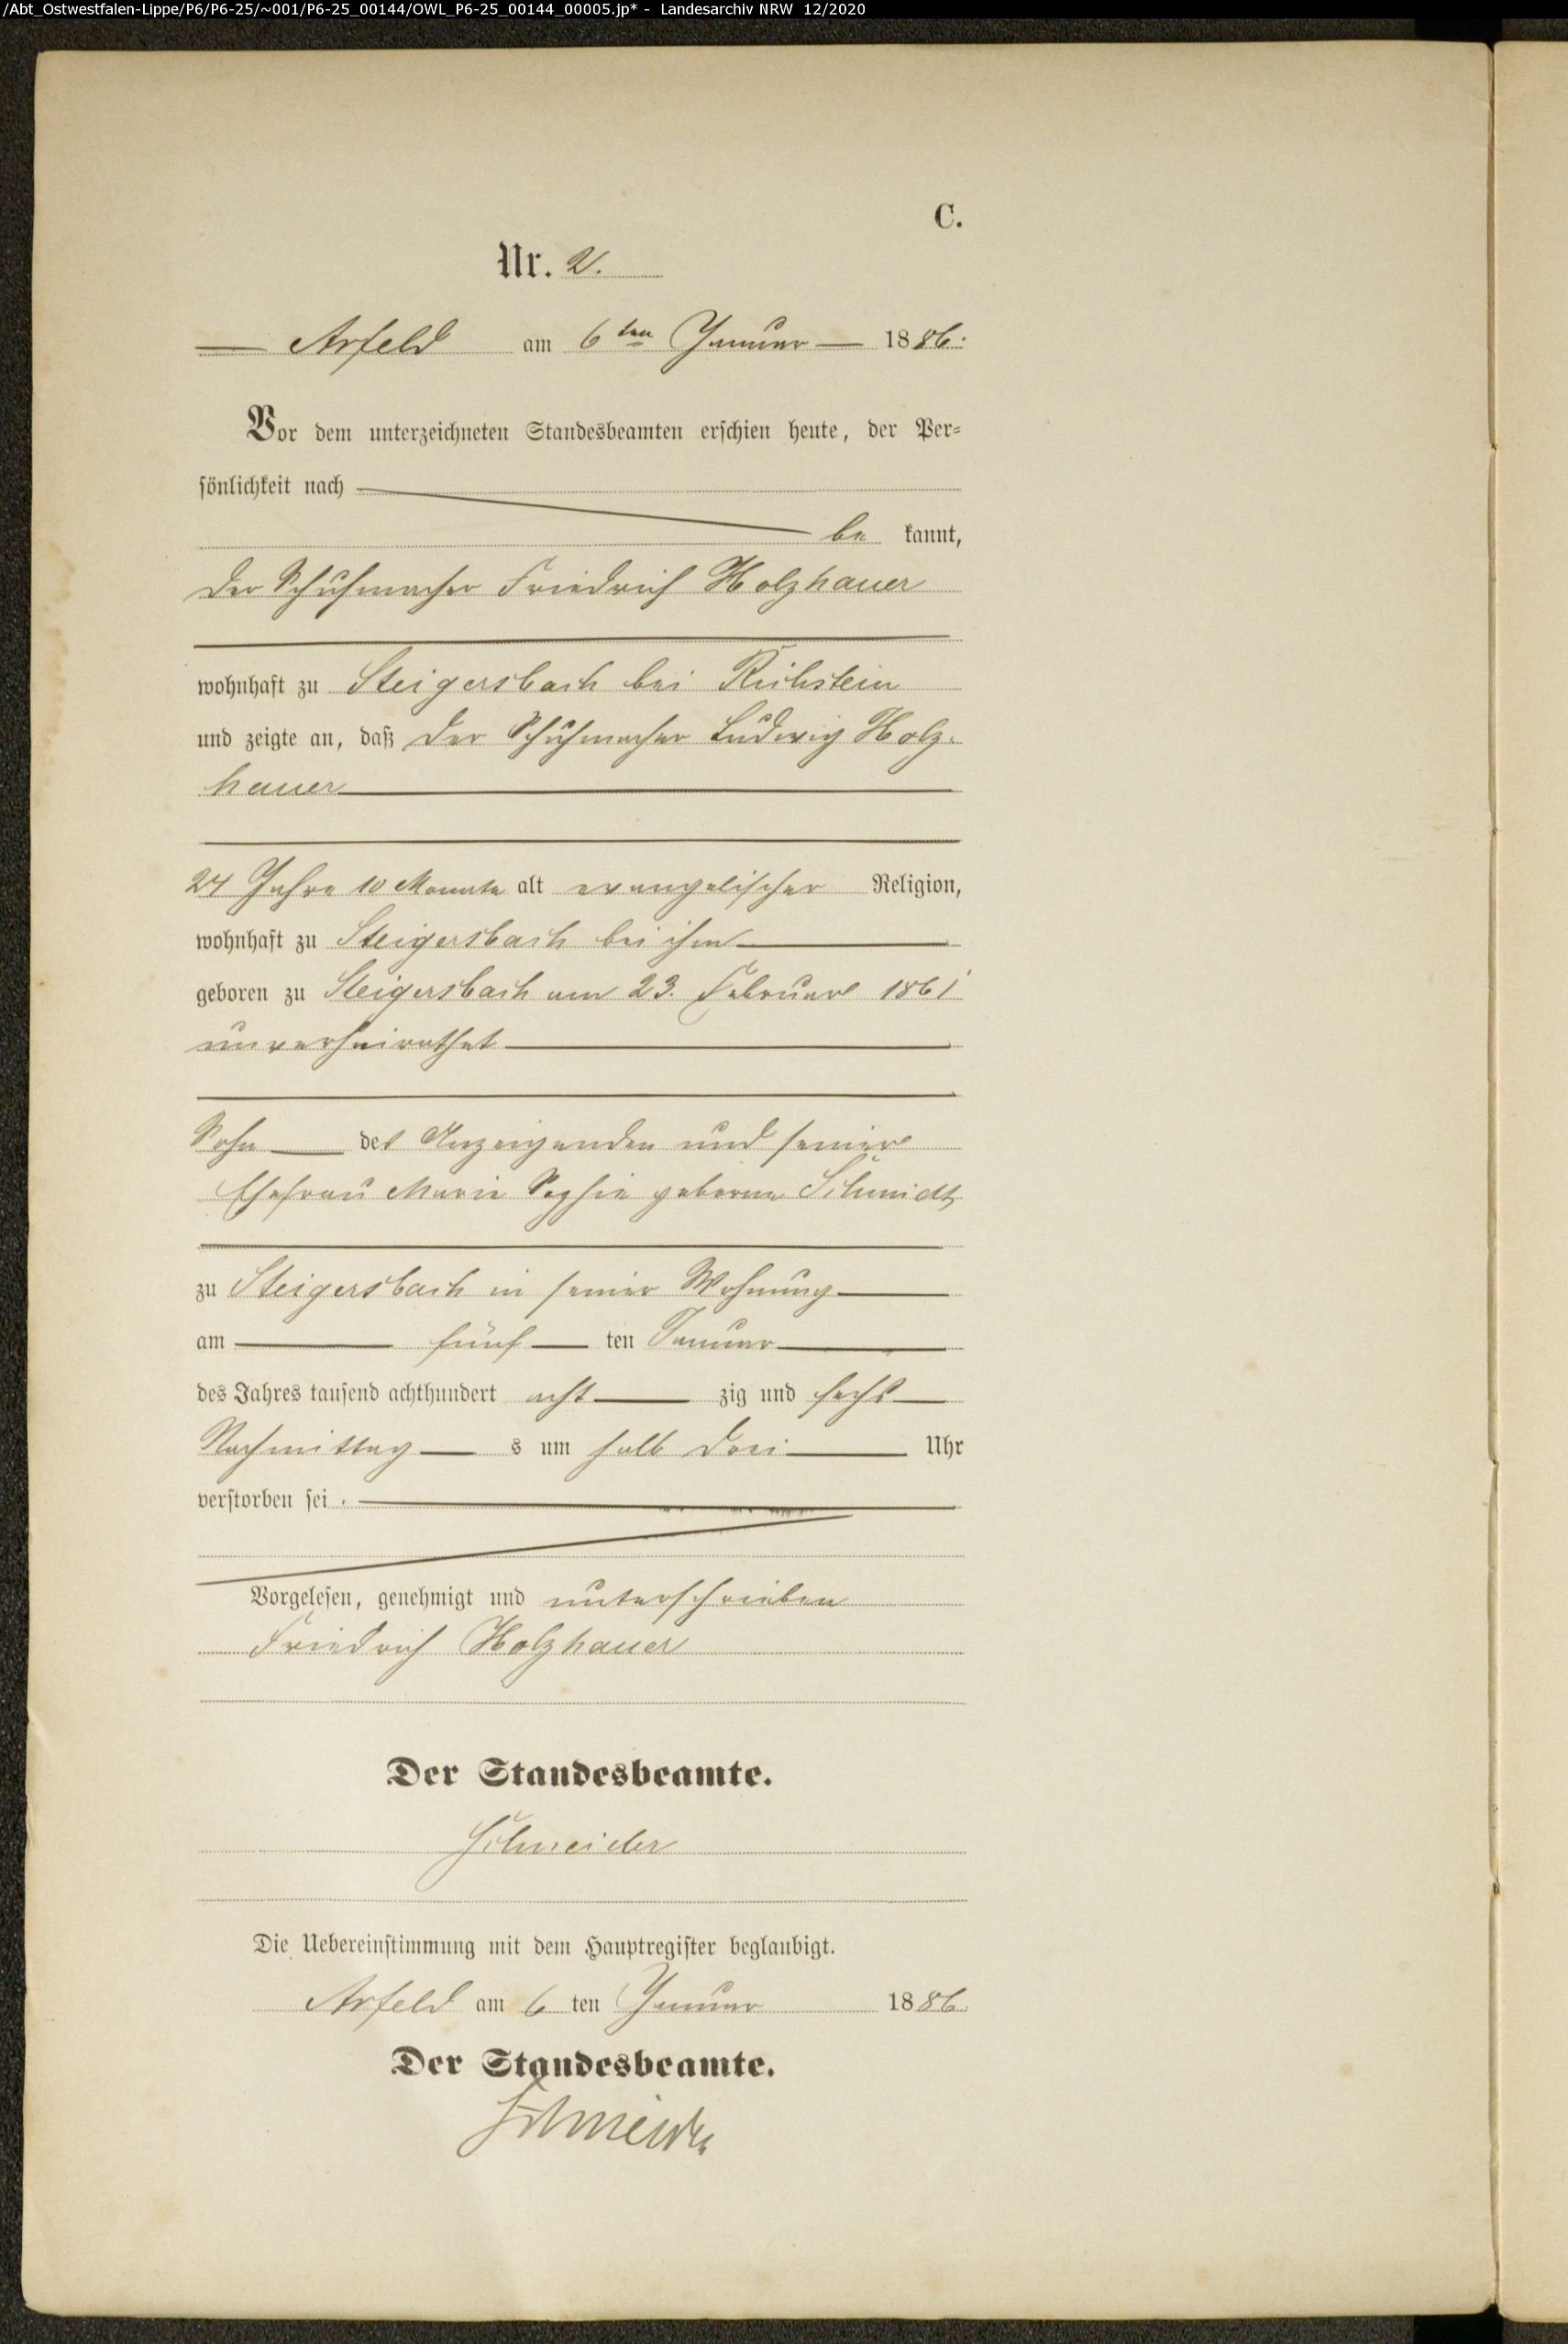 /Abt_Ostwestfalen-Lippe/P6/P6-25/~001/P6-25_00144/OWL_P6-25_00144_00005.jp* - Landesarchiv NRW 12/2020
C.
Nr. 2.
Arfeld am 6ten Januar 1886.
Vor dem unterzeichneten Standesbeamten erschien heute, der Per=
sönlichkeit nach
be kannt,
der Schuhmacher Friedrich Holzhauer
wohnhaft zu Steigersbach bei Richstein
und zeigte an, daß der Schuhmacher Ludwig Holz-
hauer
24 Jahre 10 Monate alt evangelischer Religion,
wohnhaft zu Steigersbach bei ihm
geboren zu Steigersbach am 23. Februar 1861
unverheirathet
Sohn des Anzeigenden und seiner
Ehefrau Marie Sophie geborne Schmidt,
zu Steigersbach in seiner Wohnung
am fünf ten Januar
des Jahres tausend achthundert acht zig und sechs
Nachmittag s um halb drei Uhr
verstorben sei.
Vorgelesen, genehmigt und unterschrieben
Friedrich Holzhauer
Der Standesbeamte.
Schneider
Die Uebereinstimmung mit dem Hauptregister beglaubigt.
Arfeld am 6 ten Januar 1886.
Der Standesbeamte.
Schneider